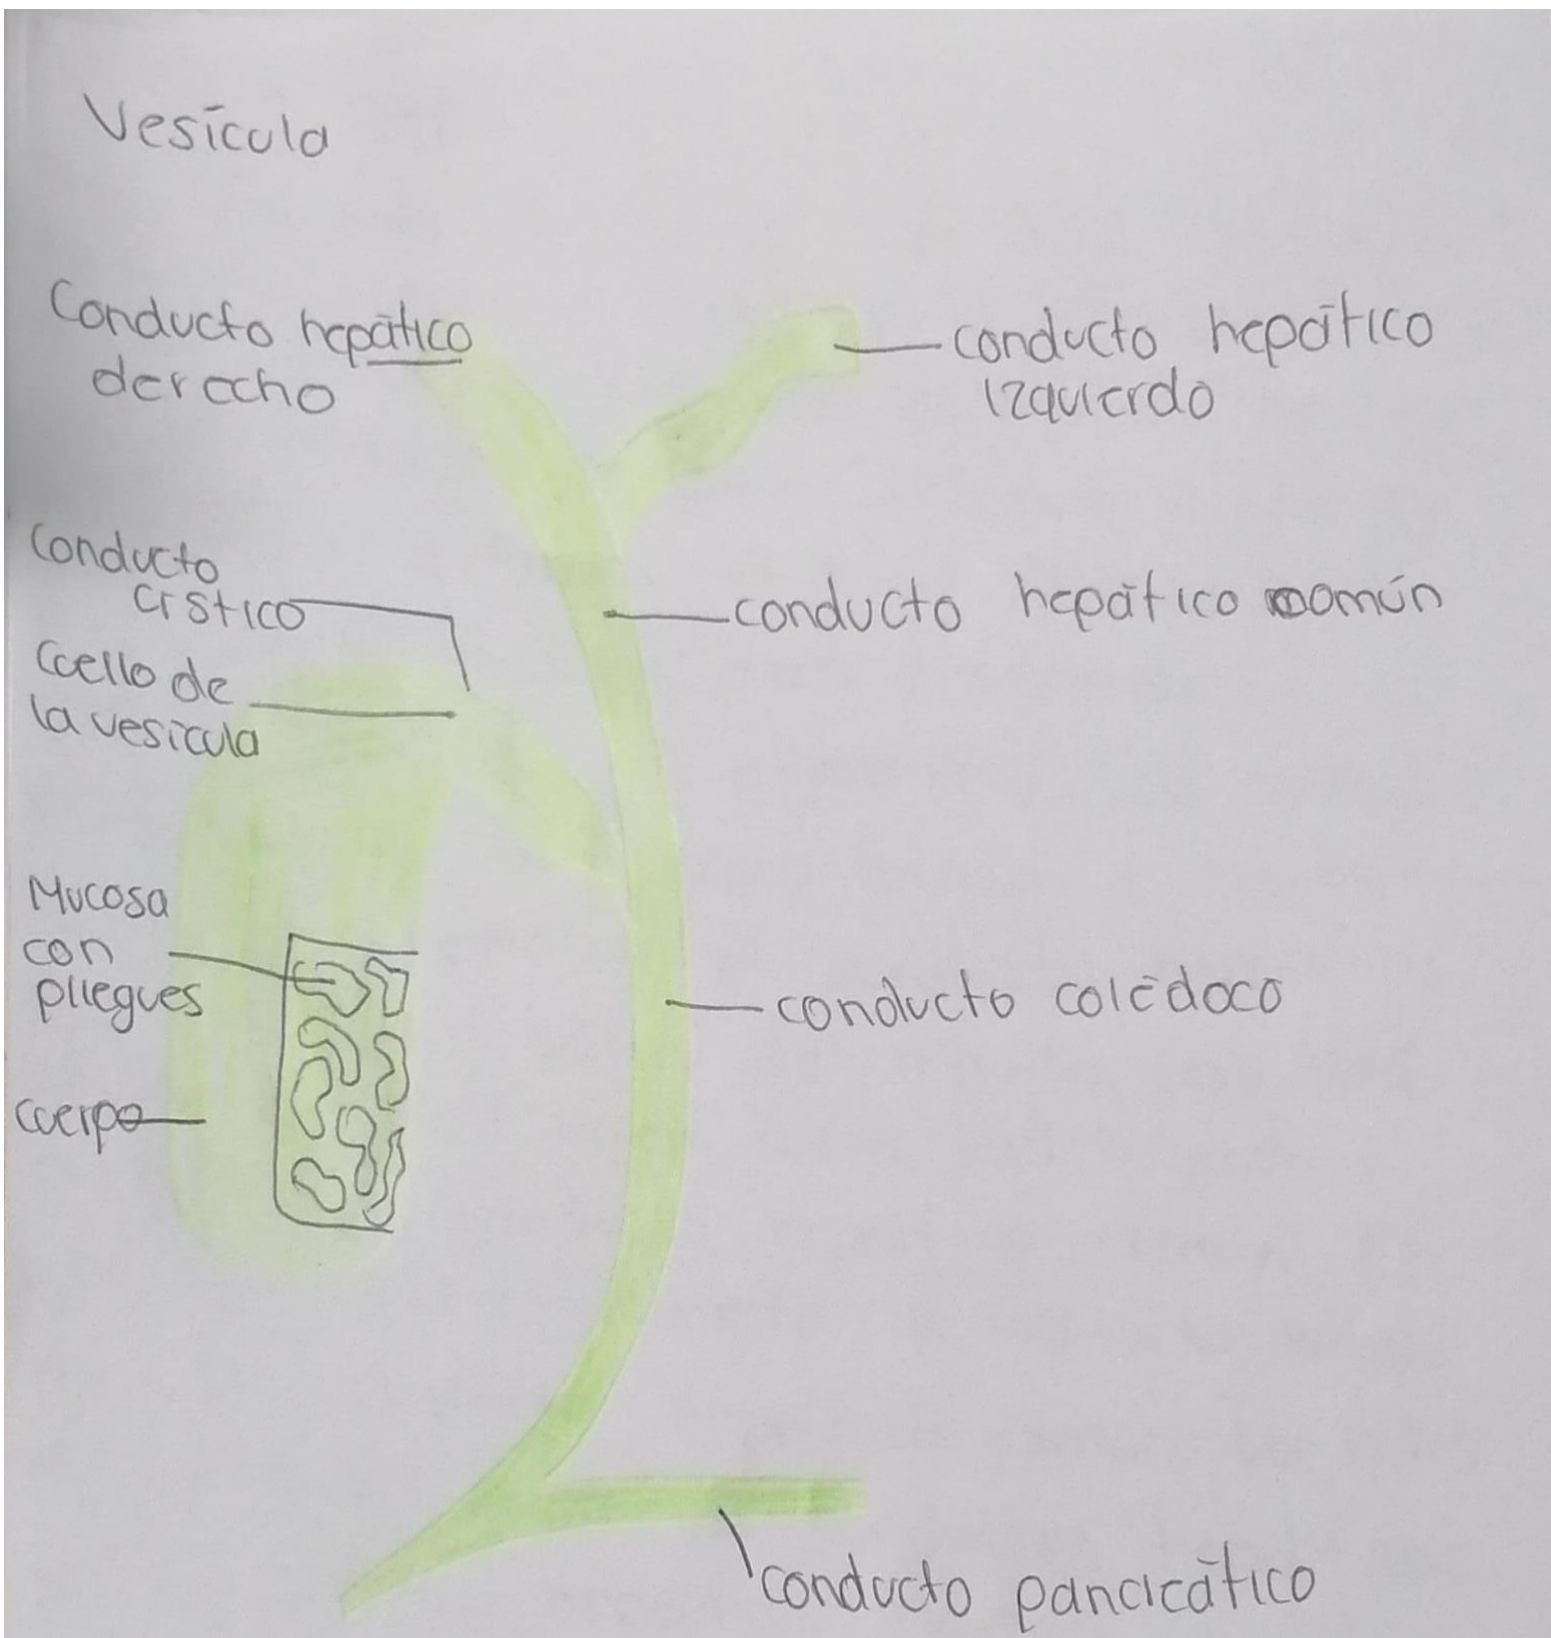 Vesícula
Conducto hepático
derecho
conducto hepático
izquierdo
Conducto
cístico
conducto hepático común
Cuello de
la vesícula
Mucosa
con
pliegues
cuerpo
conducto colédoco
conducto pancreático